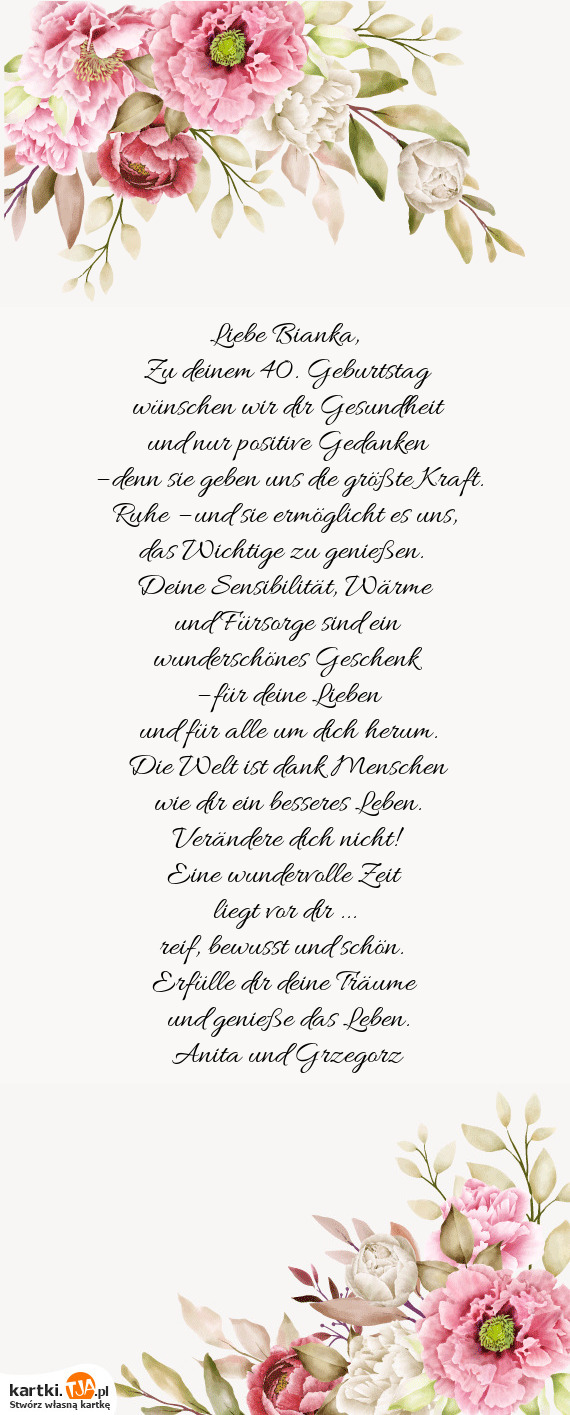 Liebe Bianka,
Zu deinem 40. Geburtstag
wünschen wir dir Gesundheit
und nur positive Gedanken
– denn sie geben uns die größte Kraft.
Ruhe – und sie ermöglicht es uns,
das Wichtige zu genießen.
Deine Sensibilität, Wärme
und Fürsorge sind ein
wunderschönes Geschenk
– für deine Lieben
und für alle um dich herum.
Die Welt ist dank Menschen
wie dir ein besseres Leben.
Verändere dich nicht!
Eine wundervolle Zeit
liegt vor dir ...
reif, bewusst und schön.
Erfülle dir deine Träume
und genieße das Leben.
Anita und Grzegorz
kartki.TJA.pl
Stwórz własną kartkę